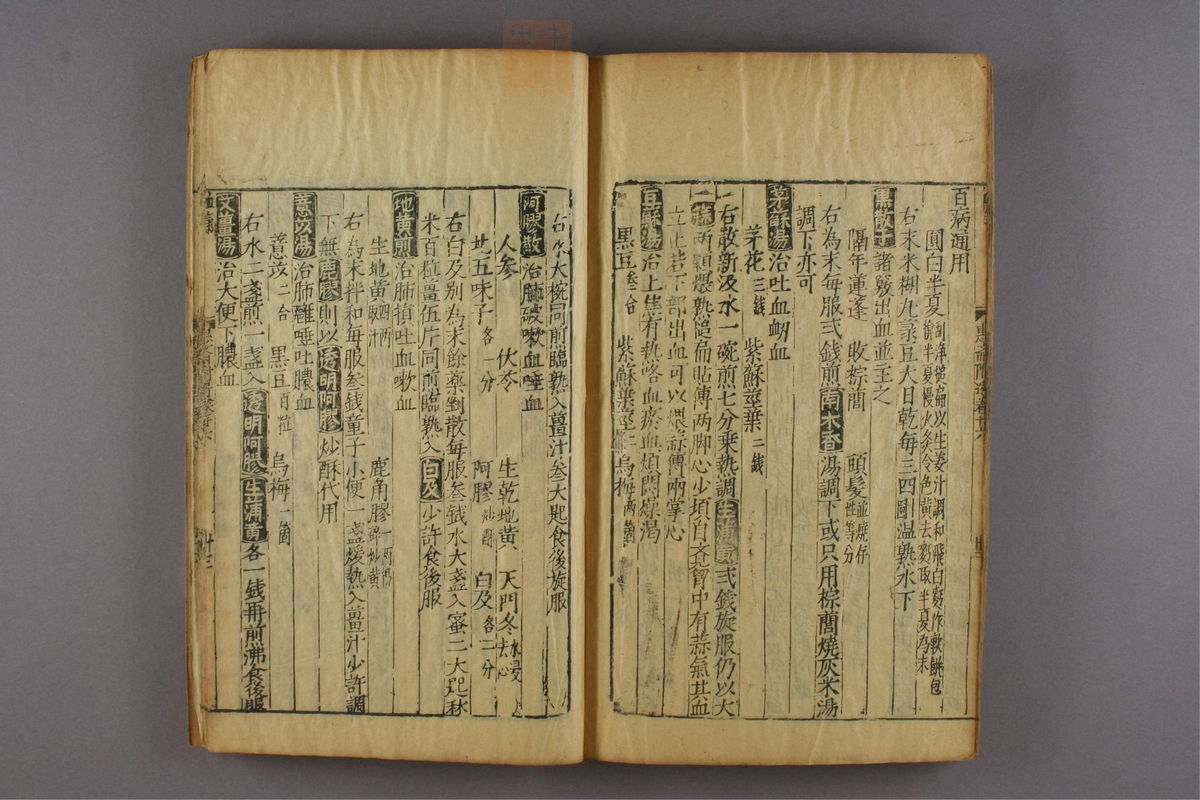 百病通用
圓白半夏刮淨搥扁以生姜汁調和飛白麪作軟餅包
淹半夏慢火炙令色黃去麪取半夏為末
右末米糊丸菉豆大日乾每三四圓溫熱水下
黑散子諸竅出血並主之
隔年蓮蓬 敗棕櫚 頭髮並燒存性等分
右為末每服弍錢煎南木香湯調下或只用棕櫚燒灰米湯
調下亦可
茅蘇湯治吐血衂血
茅花三錢 紫蘇莖葉二錢
右散新汲水一碗煎七分乘熱調生蒲黃弍錢旋服仍以大
蒜兩顆煨熟搥扁貼傅兩脚心少頃自覺胷中有蒜氣其血
立止若下部出血可以煨蒜傅兩掌心
豆蘇湯治上焦有熱咯血瘀血煩悶燥渴
黑豆叁合 紫蘇葉莖二 烏梅兩箇
右水大椀同煎臨熟入薑汁叁大匙食後旋服
阿膠散治肺破嗽血唾血
人參 茯苓 生乾地黃 天門冬水浸去心
北五味子各一分 阿膠炒 白及各二分
右白及別為末餘藥剉散每服叁錢水大盞入蜜二大匙秫
米百粒薑伍片同煎臨熟入白及少許食後服
地黃煎治肺損吐血嗽血
生地黃取汁 鹿角膠一兩碎炒黃
右為末拌和每服叁錢童子小便一盞煖熱入薑汁少許調
下無鹿膠則以透明阿膠炒酥代用
薏苡湯治肺癰唾吐膿血
薏苡二合 黑豆百粒 烏梅一箇
右水二盞煎一盞入透明阿膠生蒲黃各一錢再煎沸食後服
艾薑湯治大便下膿血